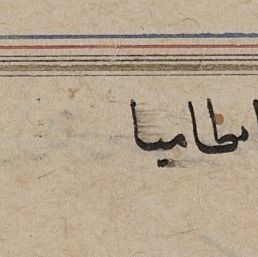 اسطاميا